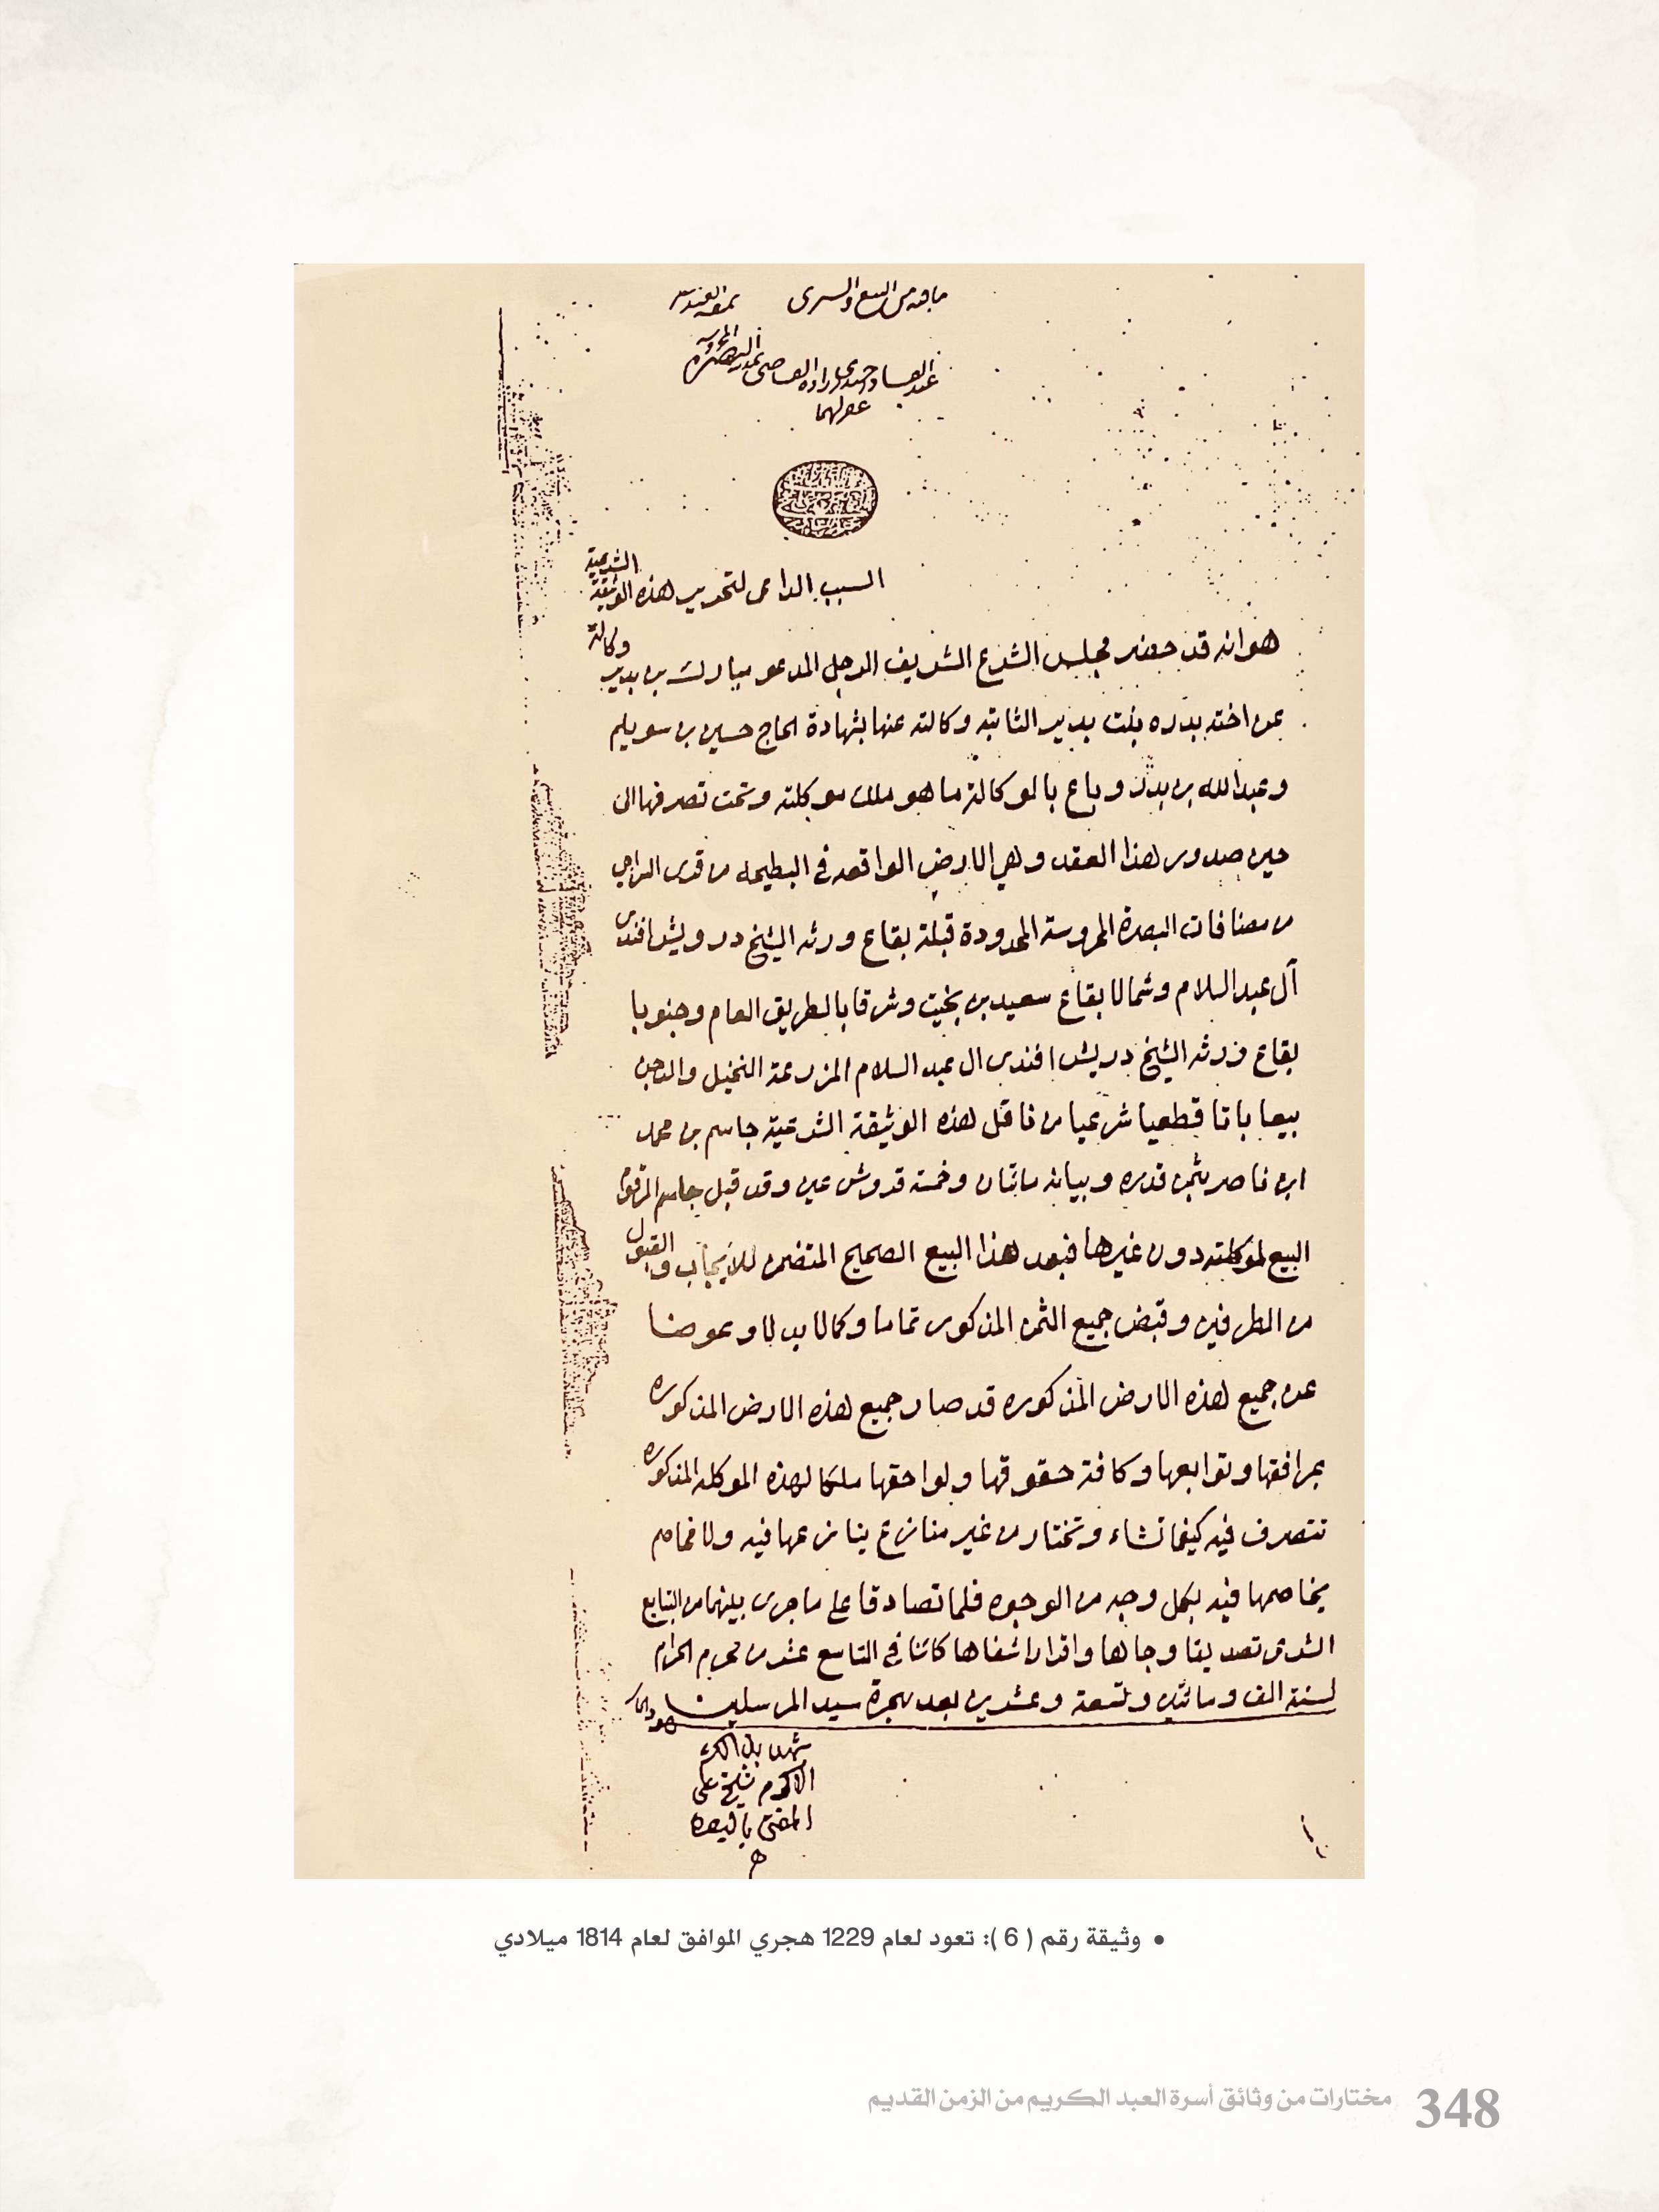 ما فيه من البيع والشرى
السبب الداعي لتحرير هذه الوثيقة الشرعية
هو انه قد حضر مجلس الشرع الشريف الرجل المدعو مبارك بن بدير وكالة
عن اخته بدره بنت بدير الثابته وكالته عنها بشهادة الحاج حسين بن سويلم
وعبدالله بن بدر وباع بالوكالة ما هو ملك موكلته وتحت تصرفها الى
حين صدور هذا العقد وهي الارض الواقعه في البطيحه من قرى السراجي
من مضافات البصرة المحروسة المحدودة قبلة بقاع ورثه الشيخ درويش افندي
آل عبدالسلام وشمالا بقاع سعيد بن بخيت وشرقا بالطريق العام وجنوبا
بقاع ورثه الشيخ دريش افندى ال عبد السلام المزرعة النخيل والدحن
بيعا باتا قطعيا شرعيا من ناقل هذه الوثيقة الشرعية جاسم بن محمد
ابن ناصر بثمن قدره وبيانه ماتان وخمسة قروش عين وقد قبل جاسم المرقوم
البيع لموكلته دون غيرها فبعد هذا البيع الصحيح المتضمن للأيجاب والقبول
من الطرفين وقبض جميع الثمن المذكور تماما وكمالا بدلا وعوضا
عن جميع هذه الارض المذكوره قد صار جميع هذه الارض المذكوره
بمرافقها وتوابعها وكافة حقوقها ولواحقها ملكا لهذه الموكله المذكوره
تتصرف فيه كيفما تشاء وتختار من غير منازع ينازعها فيه ولا مخاصم
يخاصمها فيه بكل وجه من الوجوه فلما تصادقا على ما جرى بينهما من التبايع
الشرعى تصديقا وجاها واقرارا شفاها كائنا في التاسع عشر من محرم الحرام
لسنة الف ومائتين وتسعة وعشرين بعد هجرة سيد المرسلين
شهد بذلك
الاكرم شيخ علي
المفتي بالبصره
• وثيقة رقم ( 6 ): تعود لعام 1229 هجري الموافق لعام 1814 ميلادي
348 مختارات من وثائق أسرة العبد الكريم من الزمن القديم